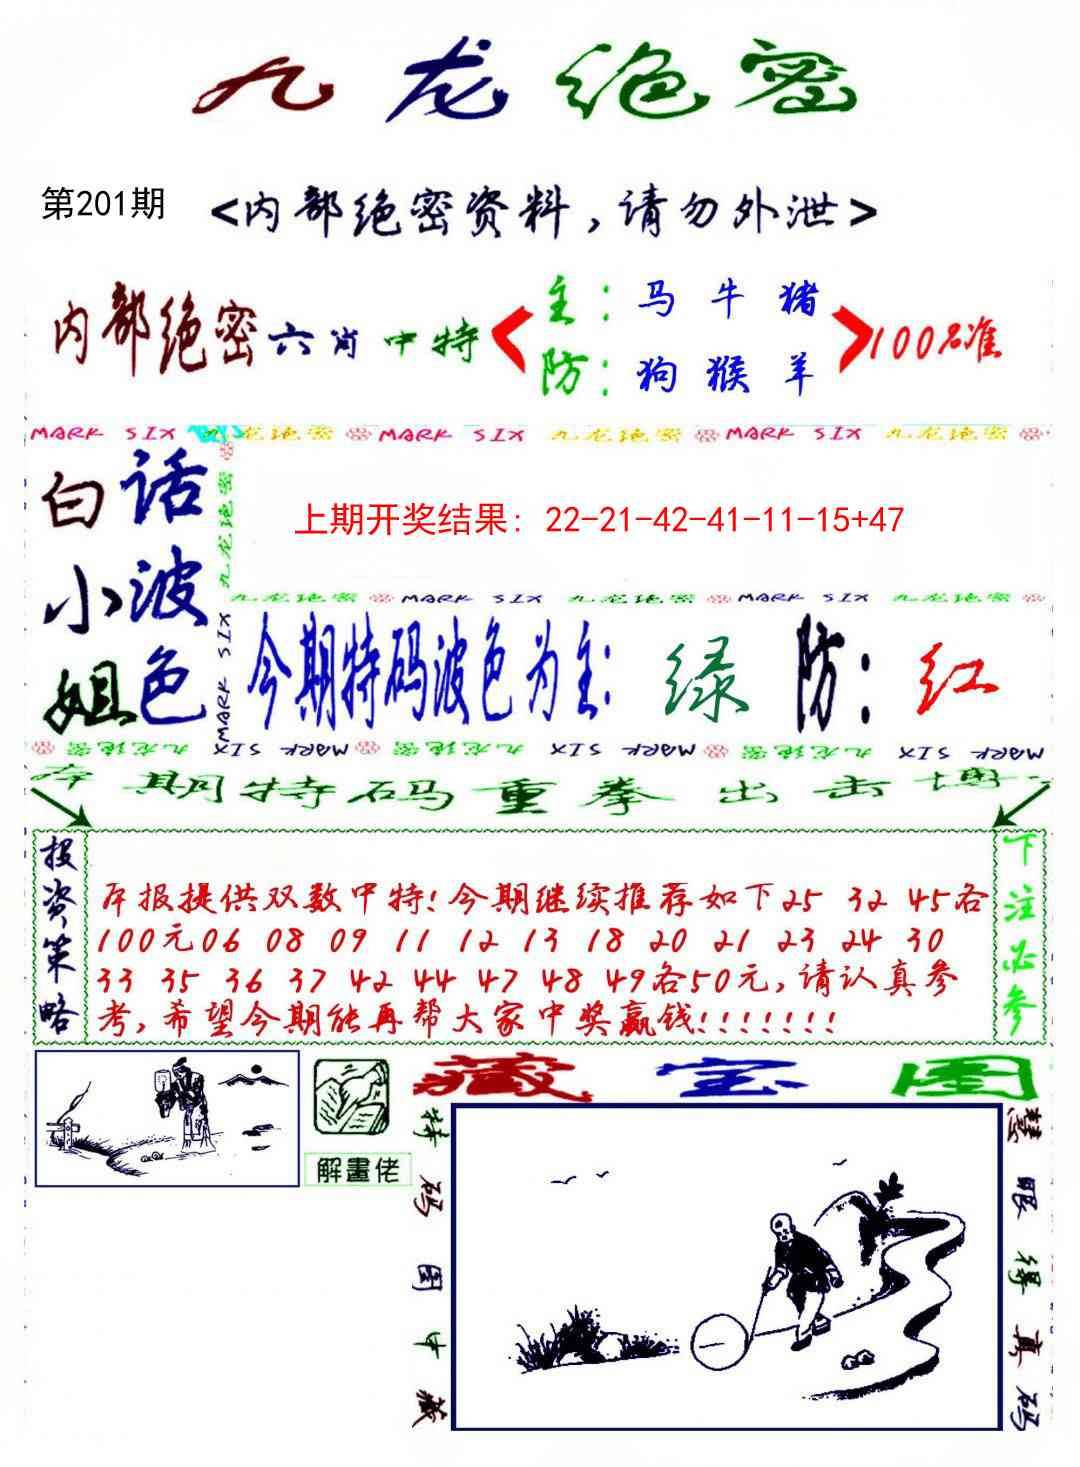 九龙绝密
第201期
<内部绝密资料,请勿外泄>
内部绝密六肖中特
主:马 牛 猪
防:狗 猴 羊
100%准
MARK SIX 九龙绝密 MARK SIX 九龙绝密 MARK SIX 九龙绝密
白话
小波
姐色
九龙绝密
MARK SIX
上期开奖结果: 22-21-42-41-11-15+47
九龙绝密 MARK SIX 九龙绝密 MARK SIX 九龙绝密
今期特码波色为主: 绿 防: 红
九龙绝密 MARK SIX 九龙绝密 MARK SIX 九龙绝密 MARK SIX
本期特码重拳出击博
投资策略
本报提供双数中特!今期继续推荐如下25 32 45各
100元06 08 09 11 12 13 18 20 21 23 24 30
33 35 36 37 42 44 47 48 49各50元,请认真参
考,希望今期能再帮大家中奖赢钱!!!!!!!
下注必参
解畫佬
藏宝图
特码图中藏
慧眼得真码